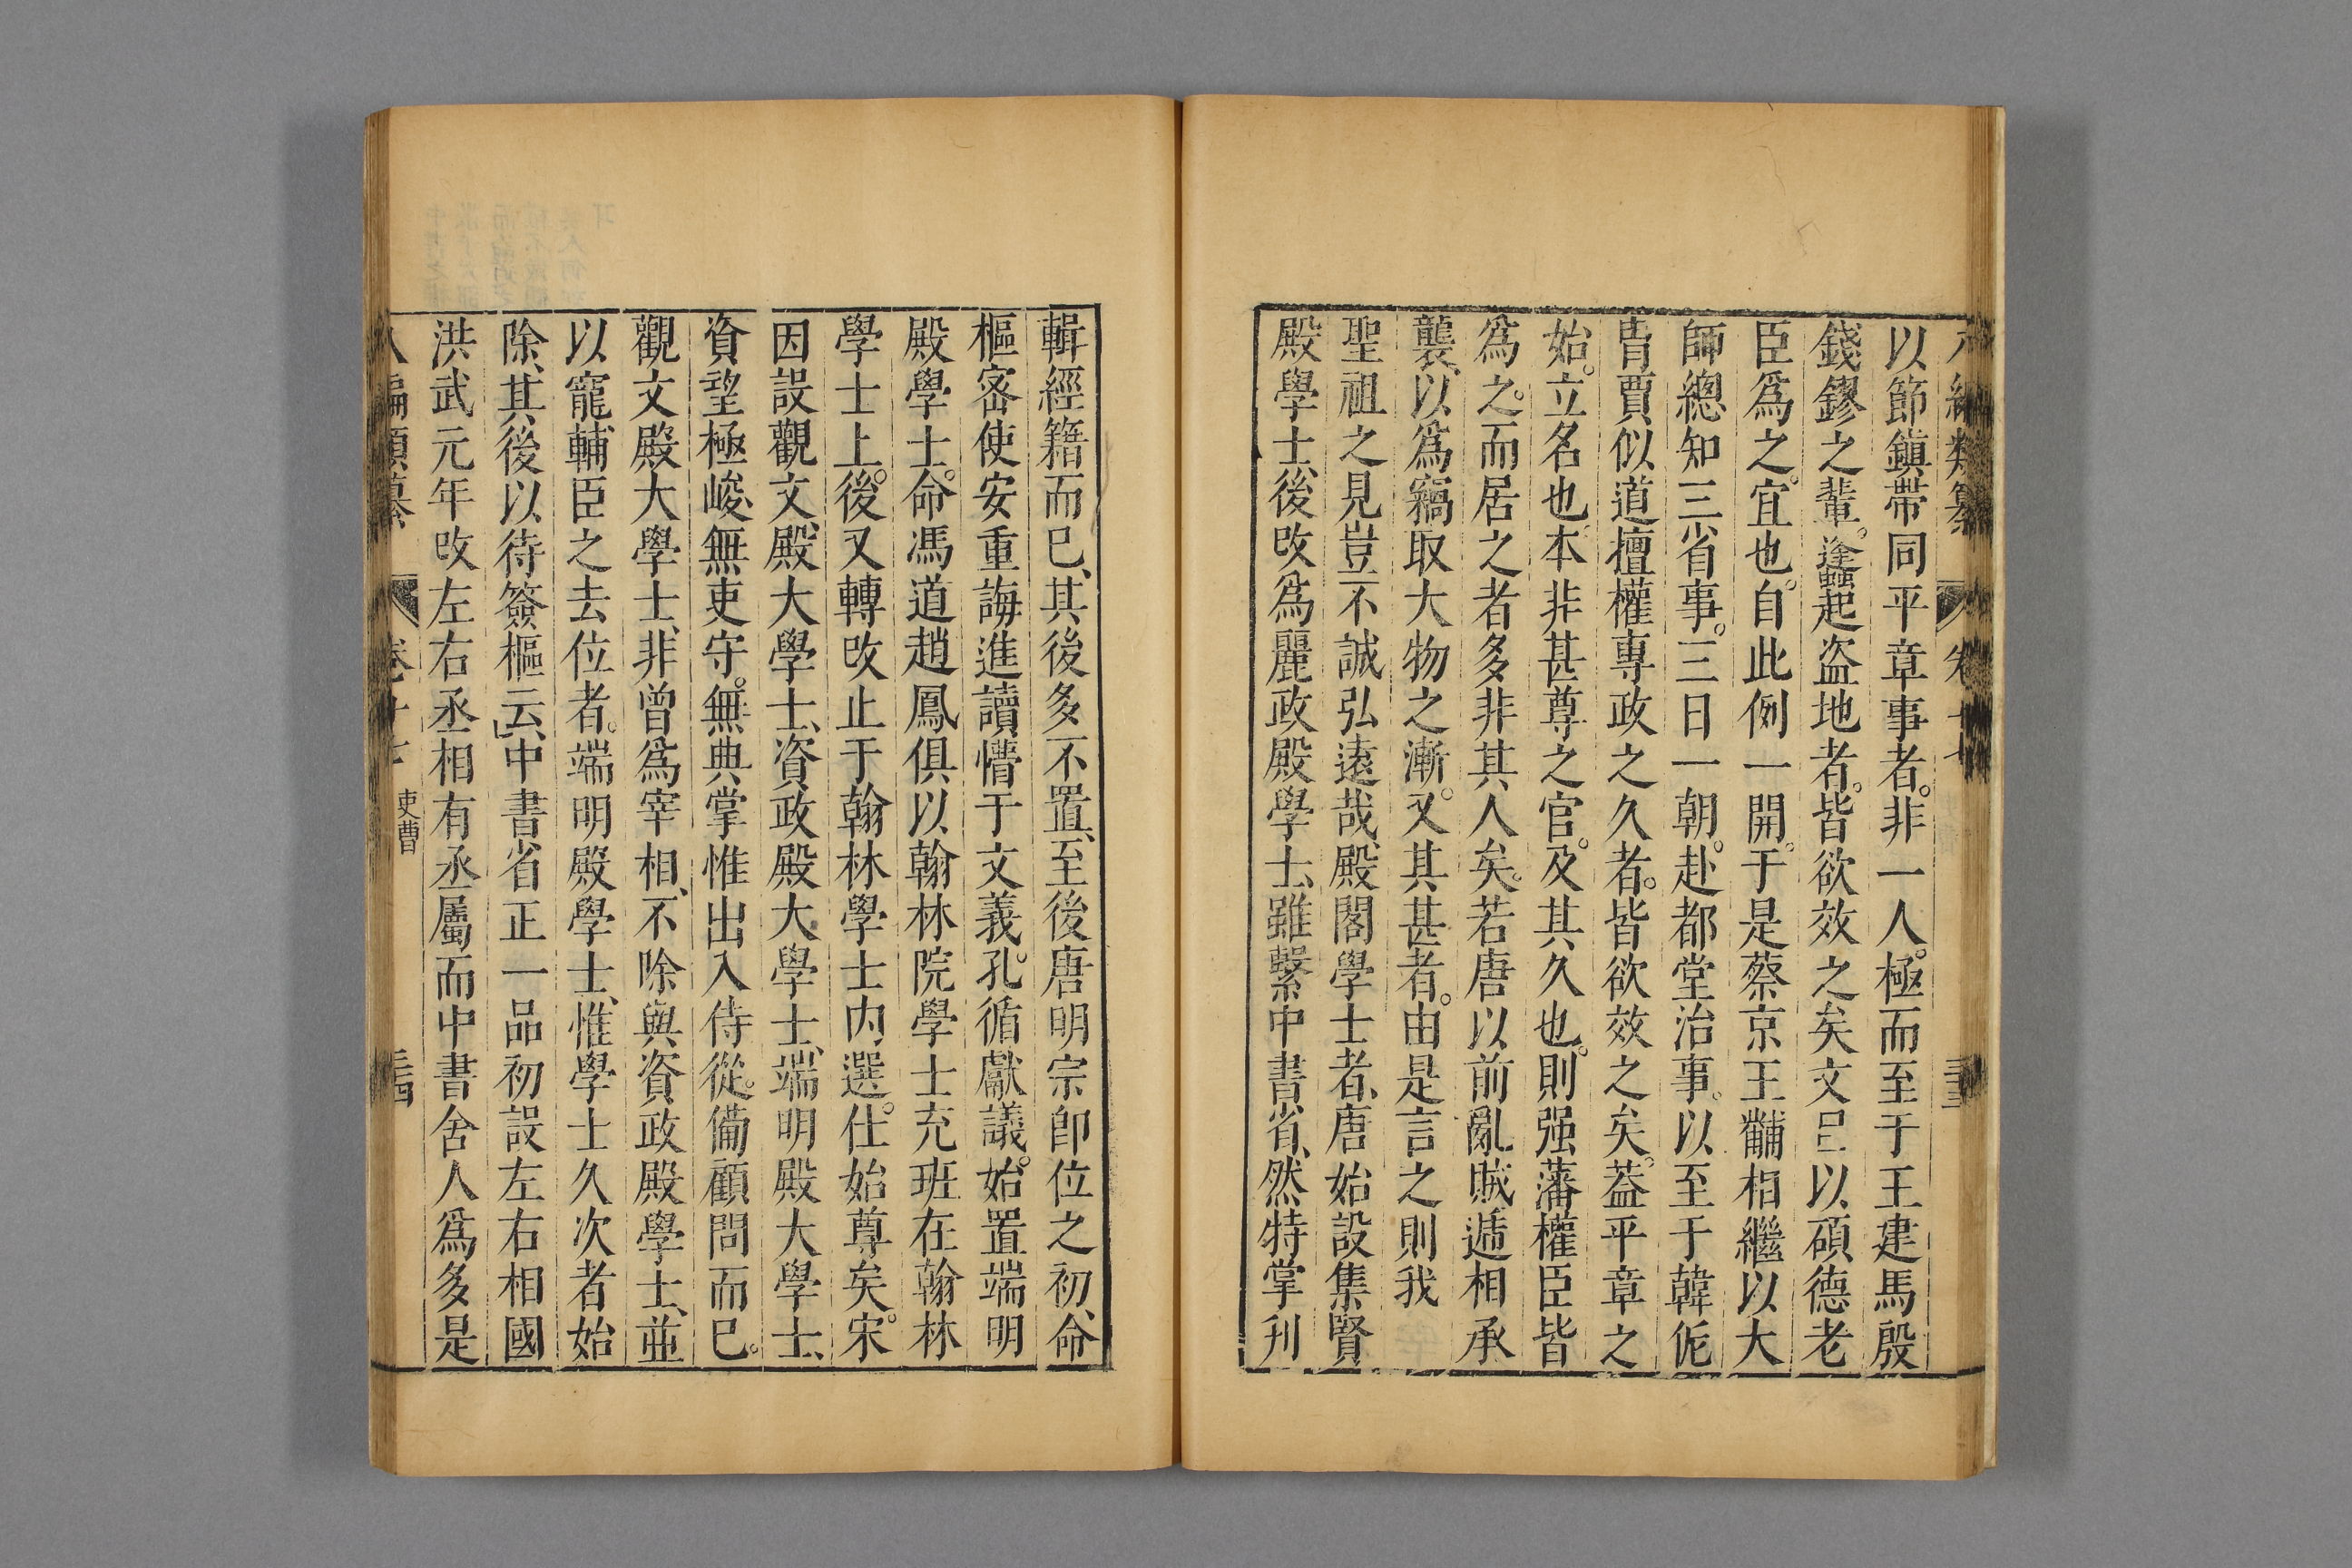 以節鎮帶同平章事者。非一人。極而至于王建馬殷
錢鏐之輩。逢蠭起盗地者。皆欲效之矣文㠯以碩德老
臣爲之。宜也。自此例一開。于是蔡京王黼相繼以大
師總知三省事。三日一朝。赴都堂治事。以至于韓侂
胄賈似道擅權專政之久者。皆欲效之矣。葢平章之
始。立名也本非甚尊之官。及其久也。則强藩權臣皆
爲之。而居之者多非其人矣。若唐以前亂賊遞相承
襲、以爲竊取大物之漸。又其甚者。由是言之則我
聖祖之見豈不誠弘遠哉、殿閣學士者、唐始設集賢
殿學士、後改爲麗政殿學士、雖繫中書省、然特掌刋
輯經籍而已、其後多不置、至後唐明宗卽位之初、命
樞密使安重誨進讀懵于文義。孔循獻議。始置端明
殿學士。命馮道趙鳳俱以翰林院學士充班在翰林
學士上。後又轉改止于翰林學士内選。仕始尊矣。宋
因設觀文殿大學士、資政殿大學士、端明殿大學士、
資望極峻、無吏守。無典掌惟出入侍從。備顧問而已。
觀文殿大學士、非曾爲宰相、不除與資政殿學士、並
以寵輔臣之去位者。端明殿學士、惟學士久次者始
除、其後以待簽樞云、中書省正一品初設左右相國
洪武元年改左右丞相有丞屬而中書舍人爲多是
八編類纂 卷十七 吏曹 三十四